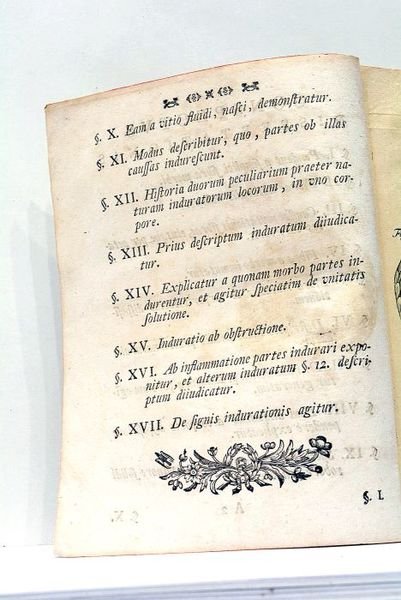 §. X. Eam a vitio fluidi, nasci, demonstratur.
§. XI. Modus describitur, quo, partes ob illas
caussas indurescunt.
§. XII. Historia duorum peculiarium praeter na-
turam induratorum locorum, in vno cor-
pore.
§. XIII. Prius descriptum induratum diiudica-
tur.
§. XIV. Explicatur a quonam morbo partes in-
durentur, et agitur speciatim de vnitatis
solutione.
§. XV. Induratio ab obstructione.
§. XVI. Ab inflammatione partes indurari expo-
nitur, et alterum induratum §. 12. descri-
ptum diiudicatur.
§. XVII. De signis indurationis agitur.
§. I.